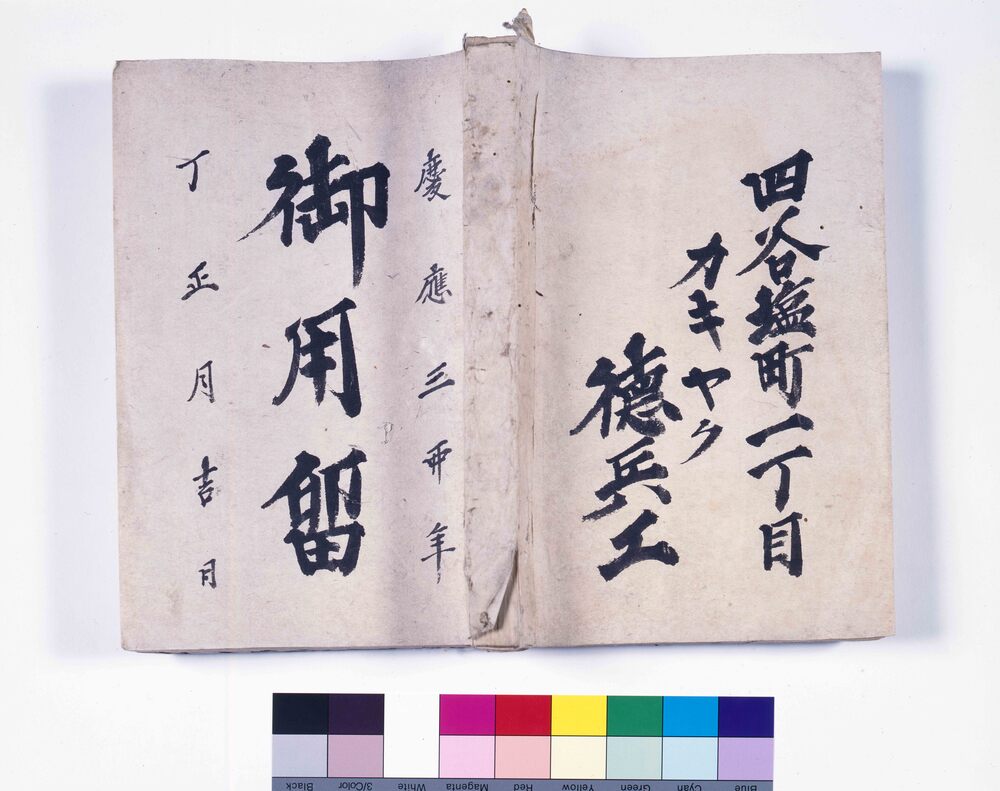 四谷塩町一丁目
カキヤク
徳兵エ
慶應三丣年
御用留
丁正月吉日
Blue Cyan Green Yellow Red Magenta White 3/Color Black